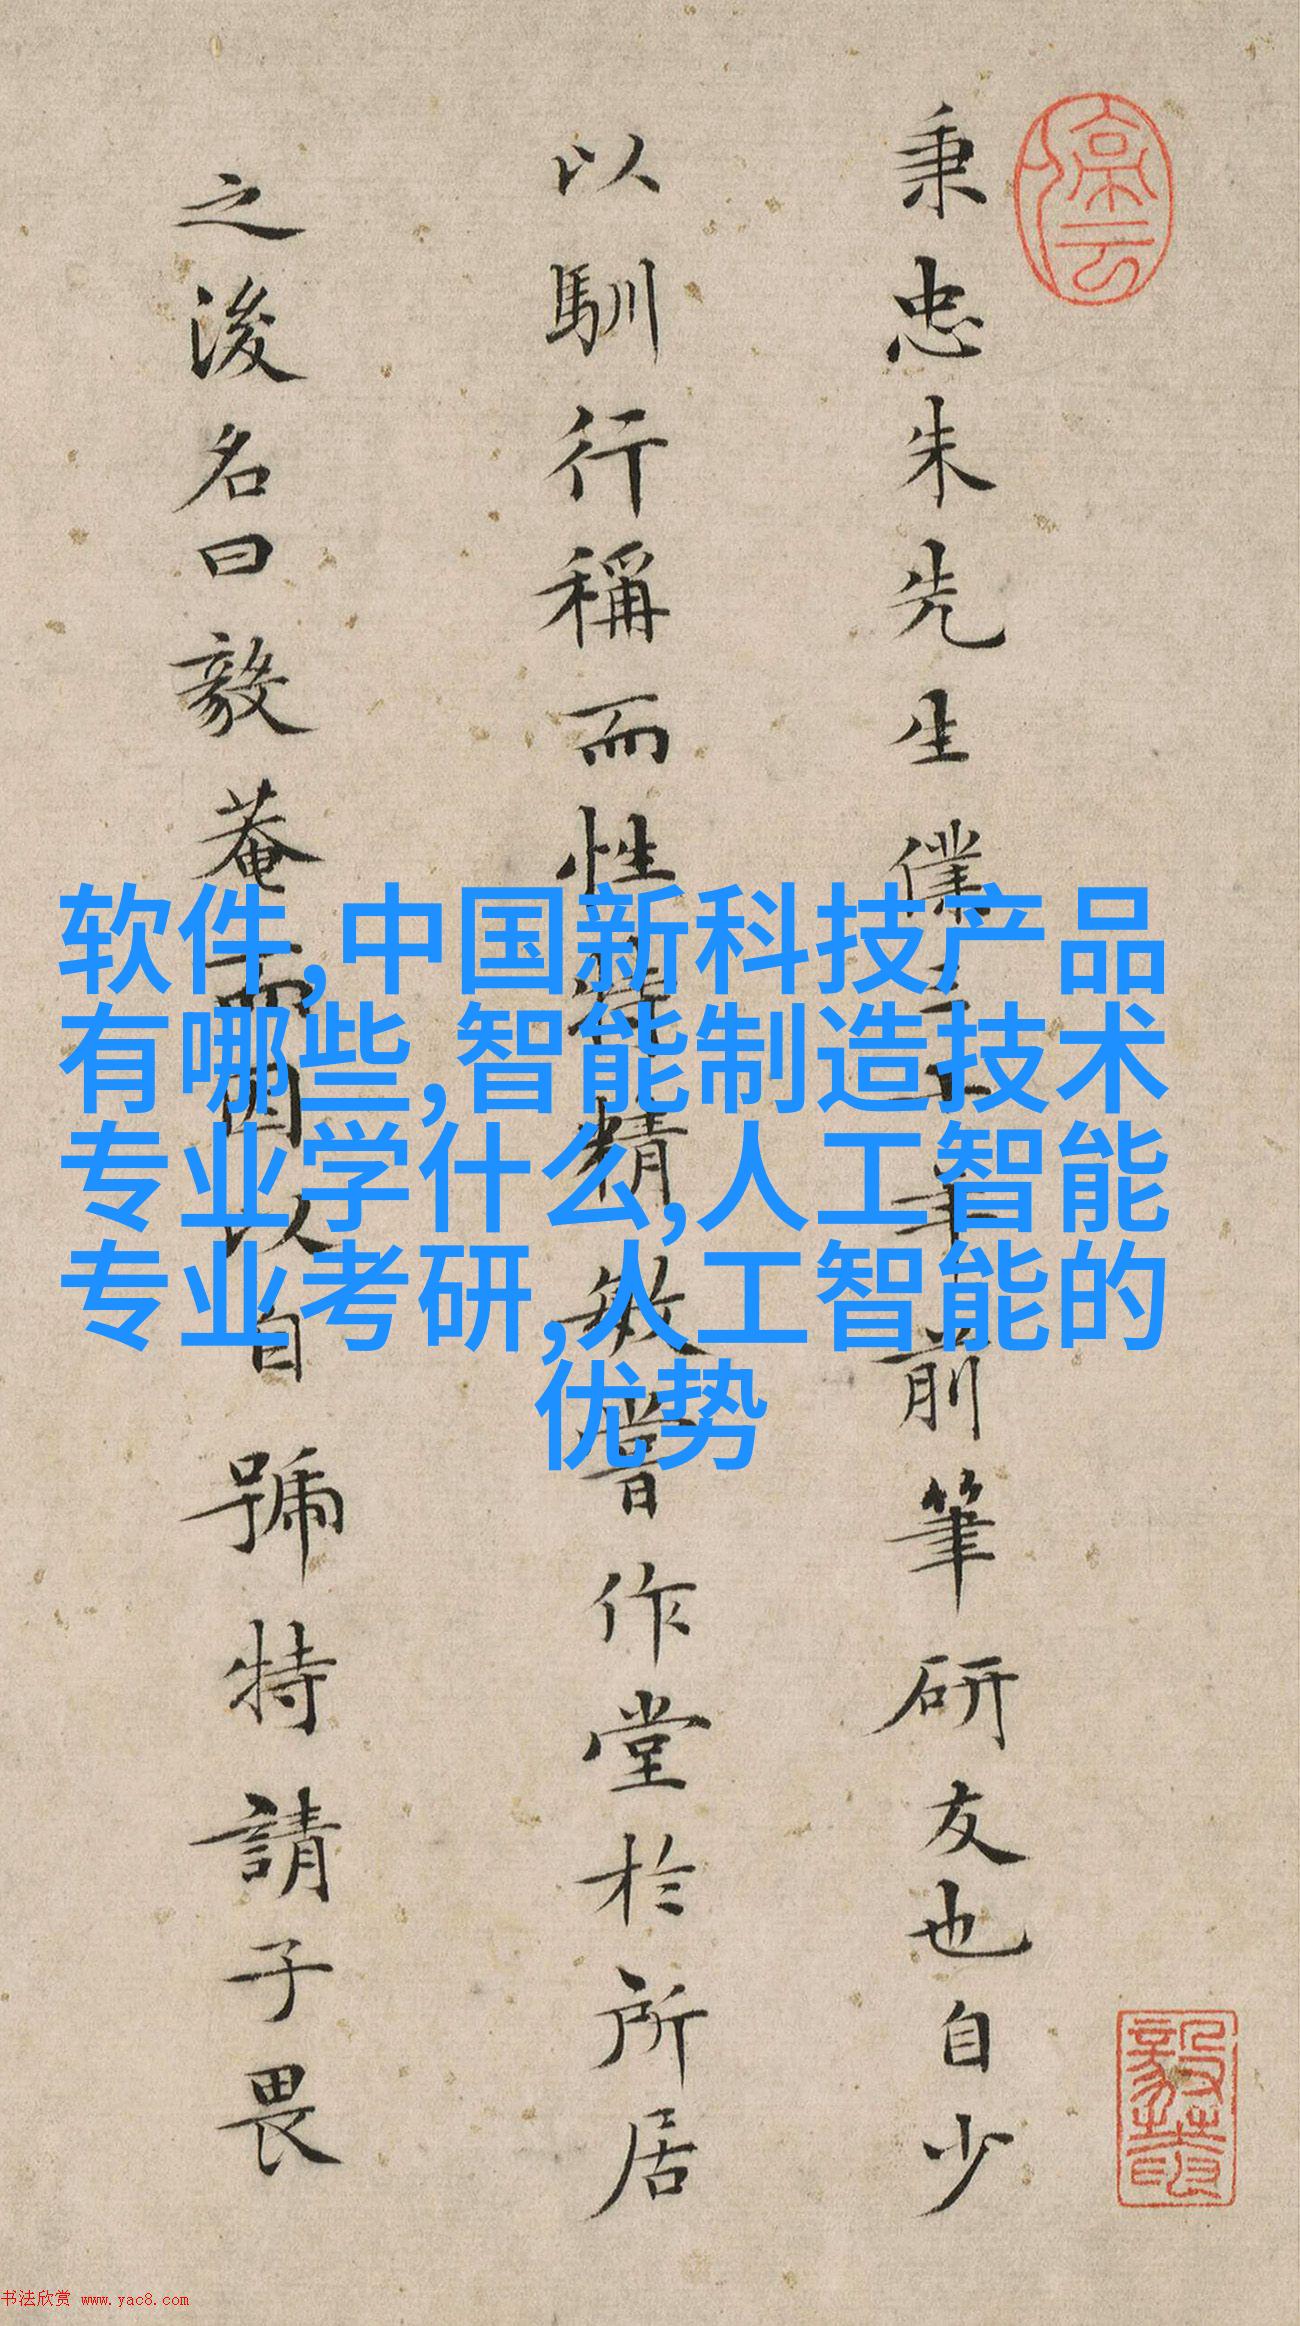 秉忠朱先生僕三十年前筆研友也自少
以馴行稱而性特精敏嘗作堂於所居
之浚名曰毅菴而因以自號特請子畏
软件,中国新科技产品
有哪些,智能制造技术
专业学什么,人工智能
专业考研,人工智能的
优势
书法欣赏 www.yac8.com